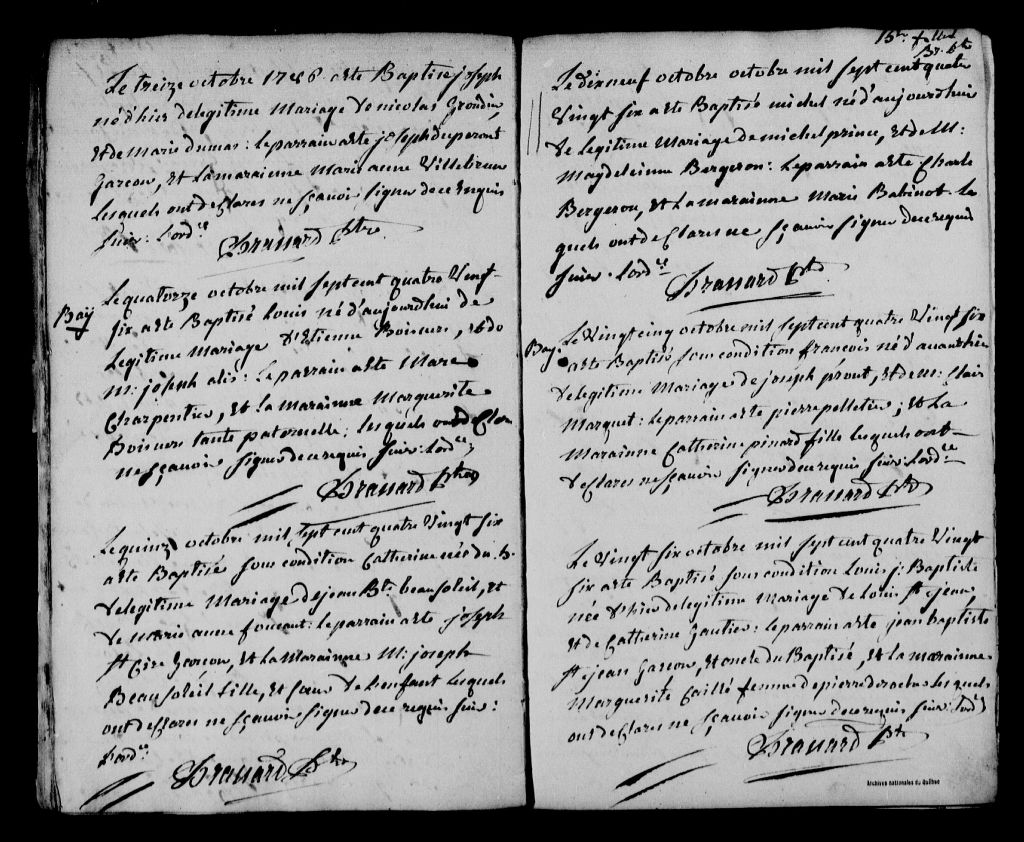 Le treize octobre 1786 a ete Baptisé joseph
né d'hier de legitime Mariage de nicolas Grondin
et de Marie dumas: le parrain a ete joseph duperont
Garcon, et La maraienne Marie anne Villebrun
lesquels ont declares ne sçavoir signer de ce enquis
suiv: Lord.ce
Brassard Ptre
Bay
Le quatorze octobre mil sept cent quatre Vingt
six a ete Baptisé Louis né d'aujourdhui de
Legitime Mariage d'Etienne Boisvers, et de
M: joseph alis: le parrain a ete Marc
Charpentier, et La maraienne Marguerite
Boisvers tante paternelle; lesquels ont declare
ne sçavoir signer de ce requis suiv: Lord.ce
Brassard Ptre
Le quinze octobre mil sept cent quatre Vingt six
a ete Baptisé sous condition Catherine née du
de legitime Mariage de jean Bte beausoleil, et
de marie anne foucaut: le parrain a ete joseph
st Cire Garcon, et La Maraienne M: joseph
Beausoleil fille, et soeur de l'enfant lesquels
ont declares ne sçavoir signer de ce requis suiv:
Lord.ce
Brassard Ptre
15.
Le dixneuf octobre octobre mil sept cent quatre
Vingt six a ete Baptisé michel né d'aujourdhui
de legitime Mariage de michel prince, et de M:
Magdeleinne Bergeron: Le parrain a ete Charle
Bergeron, et La maraienne Marie Babinot. Les
quels ont declares ne sçavoir signer de ce requis
suiv. Lord.ce
Brassard Ptre
Bay.
Le Vingt cinq octobre mil sept cent quatre Vingt six
a ete Baptisé sous condition francois né d'avanthier
de legitime Mariage de joseph prout, et de M: Clair
Marquet: le parrain a ete pierre pelletier; et La
Maraienne Catherine pinard fille lesquels ont
declares ne sçavoir signer de ce requis suiv. Lord.ce
Brassard Ptre
Le Vingt six octobre mil sept cent quatre Vingt
six a ete Baptisé sous condition Louis j: Baptiste
née d'hier de legitime Mariage de Louis st jean
et de Catherine Gautier: le parrain a ete jean baptiste
st jean Garcon, et oncle du Baptisé, et La maraienne
Marguerite Caillé femme de pierre desrochers lesquels
ont declares ne sçavoir signer de ce requis suiv. Lord.ce
Brassard Ptre
Archives nationales du Québec